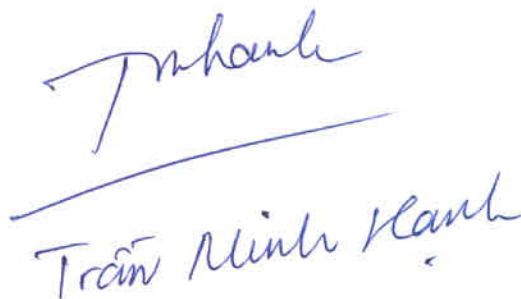 Tmhanh
Trần Minh Hạnh